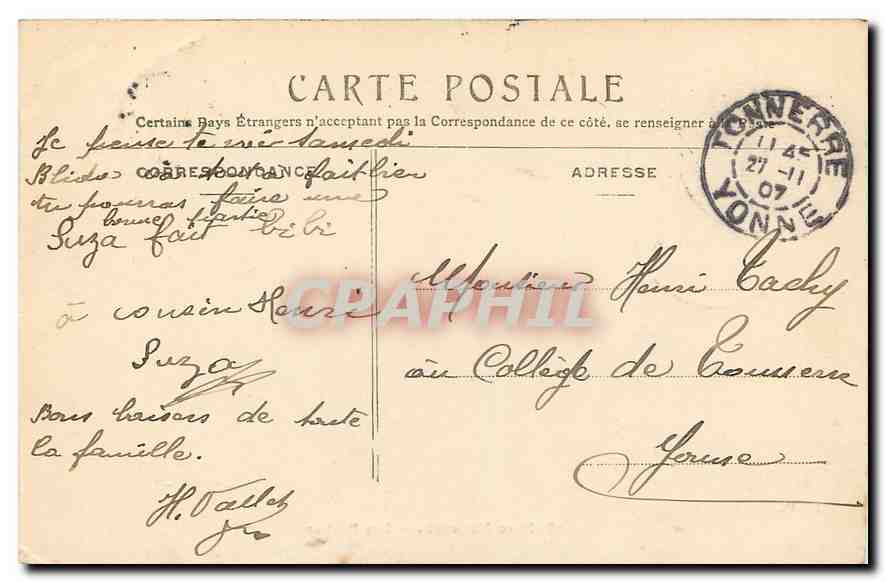 CARTE POSTALE
Certains Pays Étrangers n'acceptent pas la Correspondance de ce côté, se renseigner à la Poste
TONNERRE
11 45
27 -11
07
YONNE
CORRESPONDANCE
ADRESSE
Je pense te voir samedi
fait hier
tu pourras faire une
bonne partie
Suza fait bibi
à cousin Henri
Suza
Bons baisers de toute
la famille.
H. Vallet
Monsieur Henri Tachy
au Collège de Tonnerre
Yonne
CPAPHIL